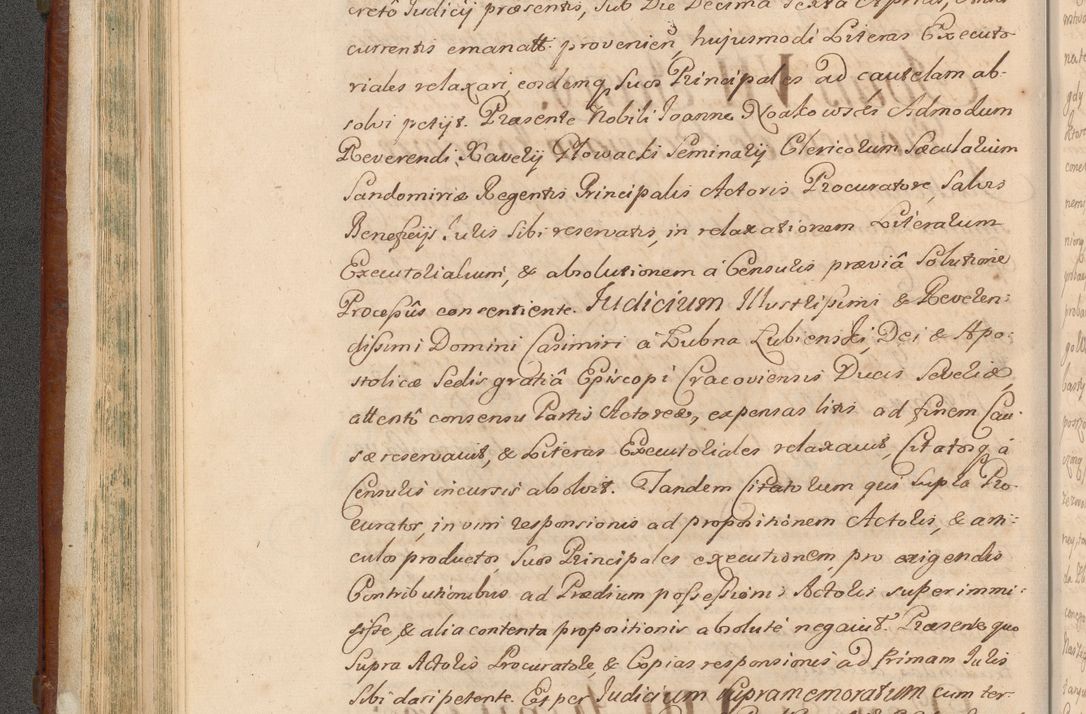 creto Judicij præsentis, sub Die Decima Sexta Aprilis, Anni
currentis emanatt. provenien, hujusmodi Literas Executo
riales relaxari, eosdemq, suos Principales ad cautelam ab-
solvi petijt. Præsente Nobili Joanne Noakowski Admodum
Reverendi Xaverij Głowacki Seminarij Clericorum Sæcularium
Sandomiriæ Regentis Principalis Actoris Procuratore, Salvis
Beneficijs Juris Sibi reservatis, in relaxationem Literarum
Executorialium, & absolutionem á Censuris præviâ Solutione
Processûs consentiente. Judicium Illustrissimi & Reveren:
dissimi Domini Casimiri á Łubna Lubienski, Dei & Apo:
stolicæ Sedis gratiâ Episcopi Cracoviensis Ducis Severiæ,
attentô consensu Partis Actoreæ, expensas litis ad finem Cau-
sæ reservavit, & Literas Executoriales relaxavit, Citatosq, á
Censuris incursis absolvit. Tandem Citatorum qui supra Pro-
curator, in vim responsionis ad propositionem Actoris, & arti:
culos productos, suos Principales executionem, pro exigendis
Contributionibus ad Prædium possessionis Actoris superimmi:
sisse, & alia contenta propositionis absolute negavit. Præsente quo
Supra Actoris Procuratore, & Copias responsionis ad primam Juris
Sibi dari petente. Et per Judicium supramemoratum cum ter-